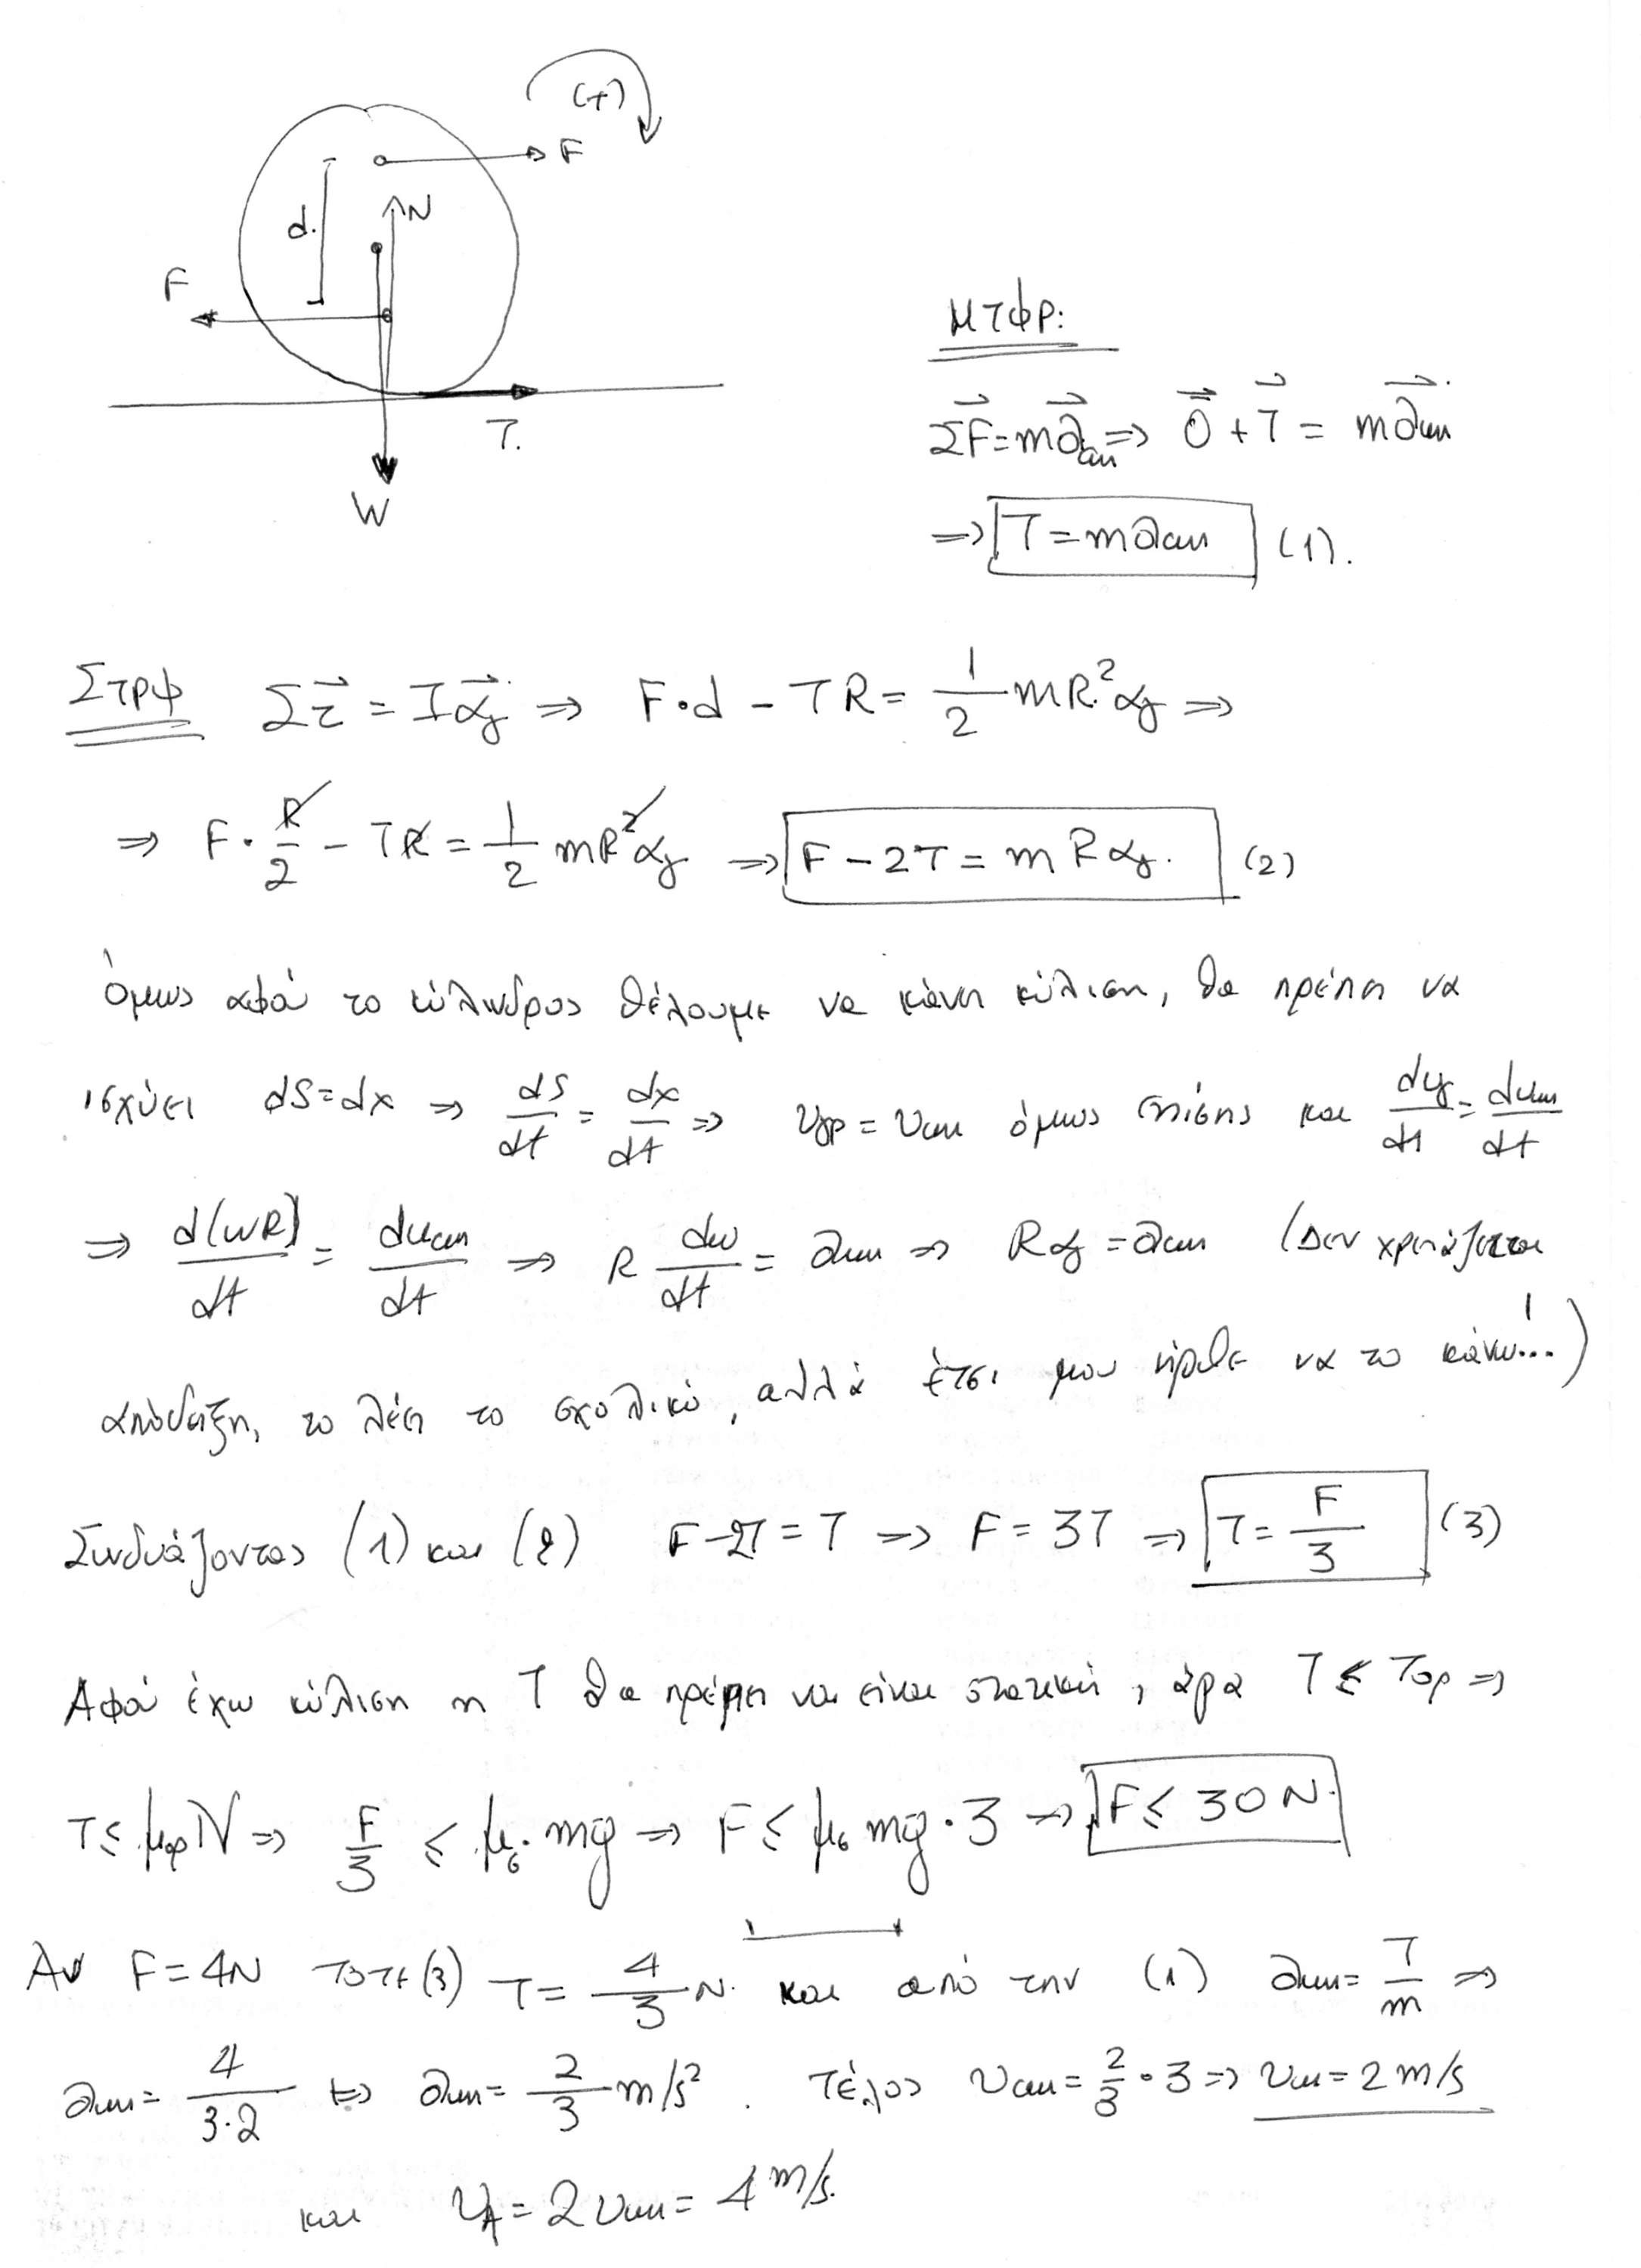 (+)
F
d.
N
F
T.
W
ΜΤΦΡ:
ΣF⃗=ma⃗cm => 0⃗ + T⃗ = ma⃗cm
=> T = macm (1).
Στρφ Στ⃗ = Iα⃗γ => F·d - TR = 1/2 mR²αγ =>
=> F·R/2 - TR = 1/2 mR²αγ => F - 2T = mRαγ. (2)
όμως αφού το κύλινδρος θέλουμε να κάνει κύλιση, θα πρέπει να
ισχύει dS=dx => dS/dt = dx/dt => υγρ = υcm όμως επίσης και dυγ/dt = dυcm/dt
=> d(ωR)/dt = dυcm/dt => R dω/dt = acm => Rαγ = acm (Δεν χρειάζεται
απόδειξη, το λέει το σχολικό, αλλά έτσι μου ήρθε να το κάνω!...)
Συνδυάζοντας (1) και (2) F-2T = T => F = 3T => T = F/3 (3)
Αφού έχω κύλιση η T θα πρέπει να είναι στατική, άρα T ≤ Τορ =>
T ≤ μορN => F/3 ≤ μσ·mg => F ≤ μσmg·3 => F ≤ 30N.
Αν F=4N τότε (3) T = 4/3 N. και από την (1) acm = T/m =>
acm = 4/3·2 <=> acm = 2/3 m/s². Τέλος υcm = 2/3·3 => υcm = 2m/s
και υA = 2υcm = 4m/s.